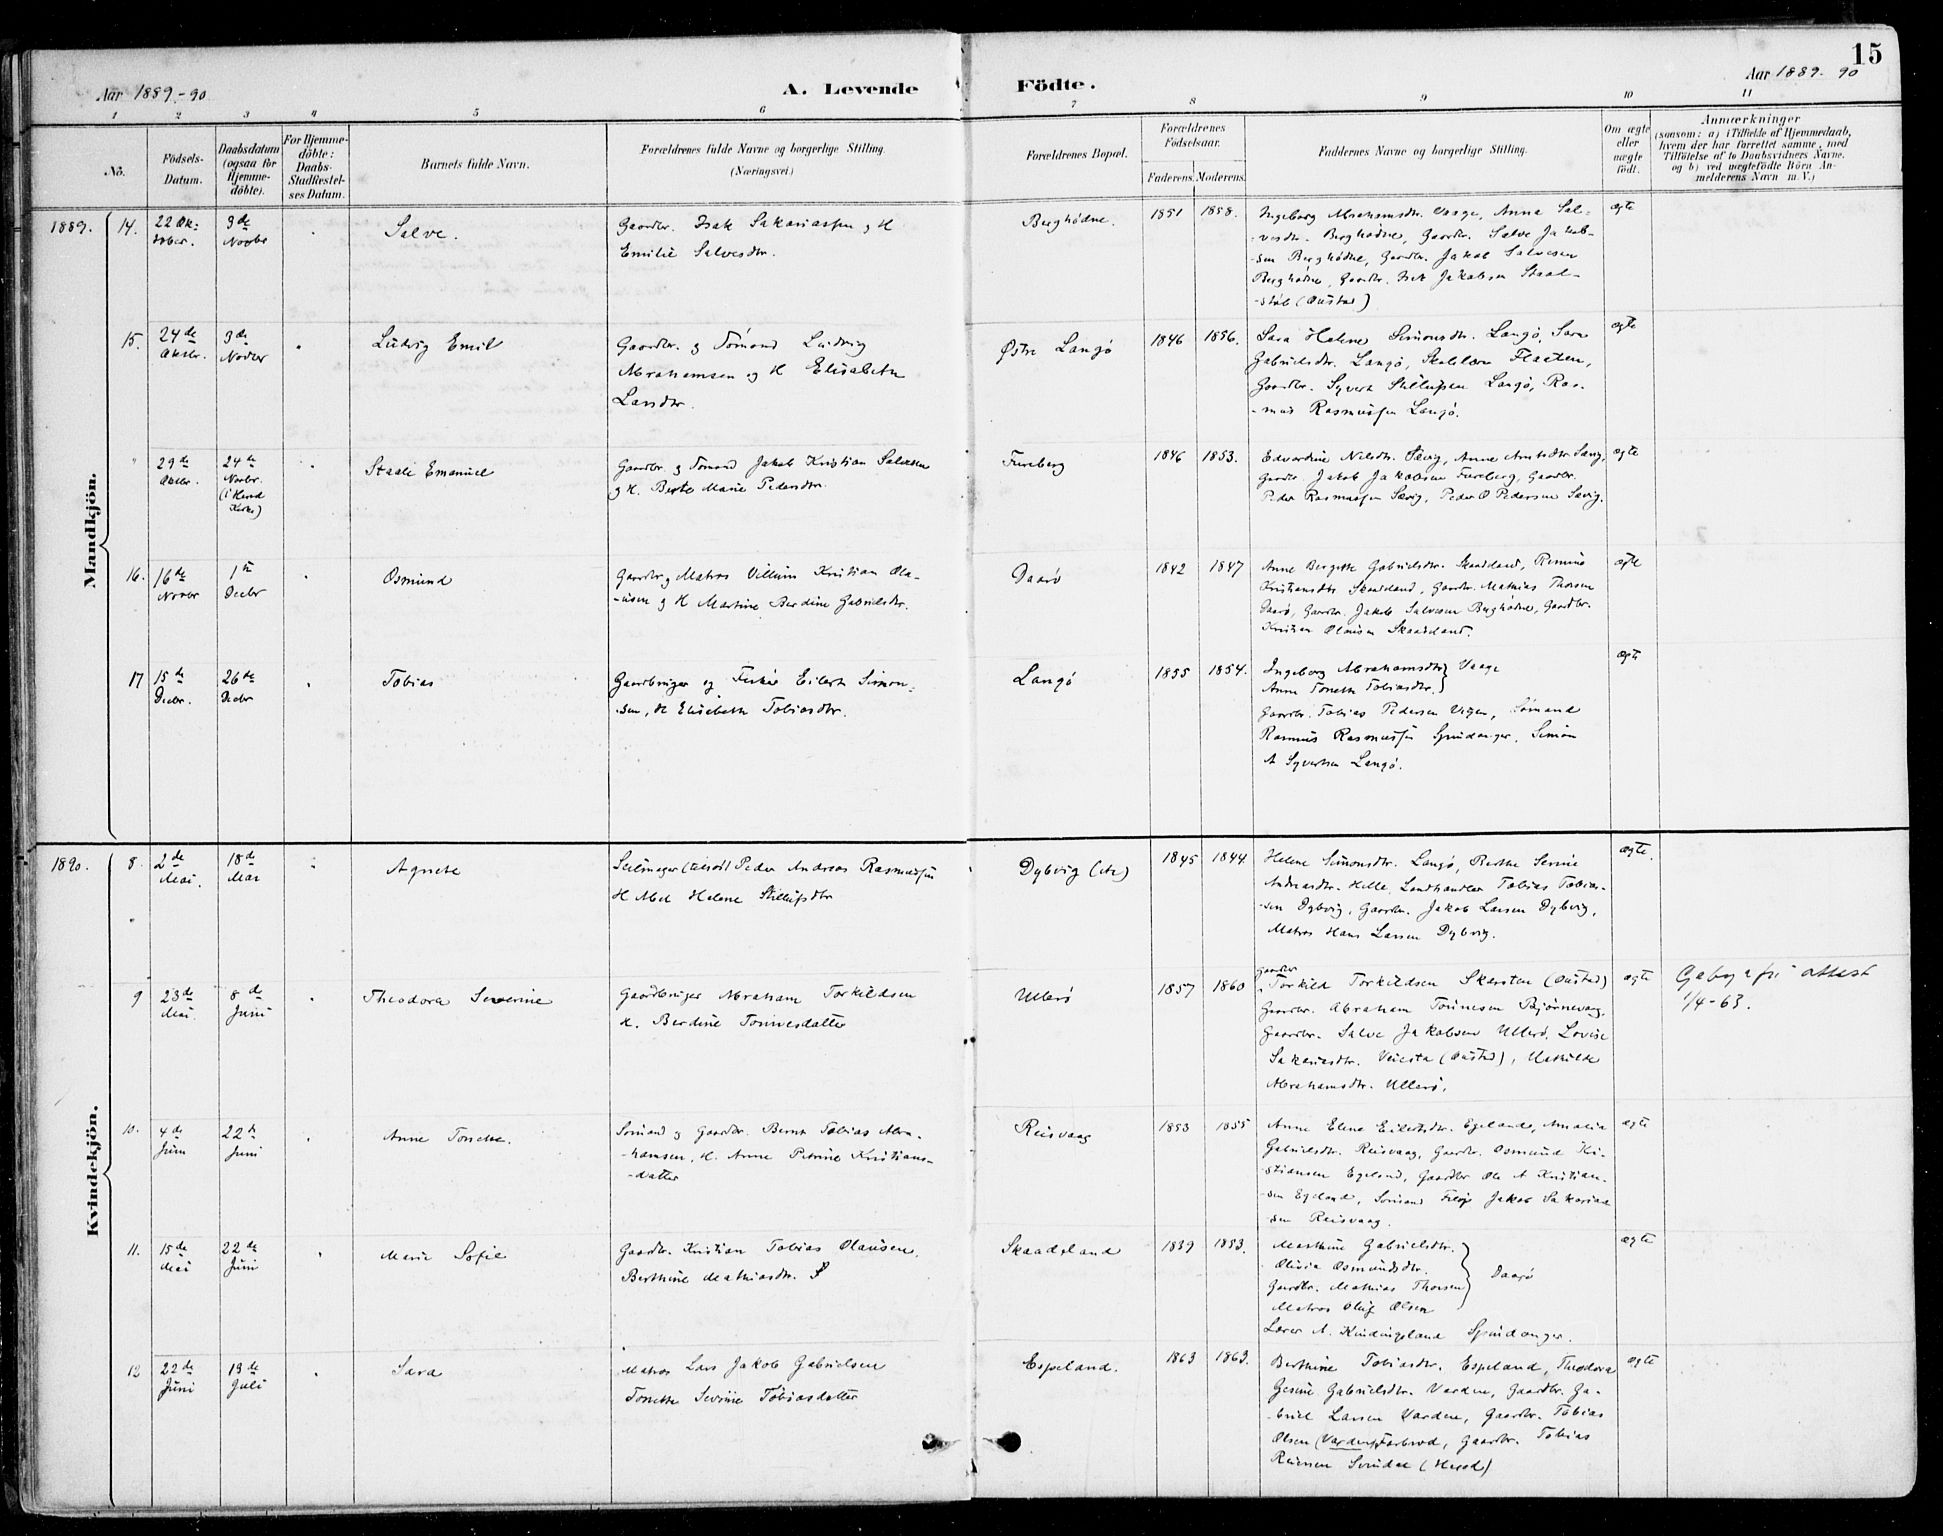 15
Aar 1889.-90
A. Levende
Födte.
Aar 1889. 90
1 2 3 4 5 6 7 8 9 10 11
No.
Födsels-
Datum.
Daabsdatum
(ogsaa for
Hjemme-
döbte).
For Hjemme-
döbte:
Daabs-
Stadfæstel-
ses Datum.
Barnets fulde Navn.
Forældrenes fulde Navne og borgerlige Stilling.
(Næringsvei.)
Forældrenes Bopæl.
Forældrenes
Födselsaar.
Faderens. Moderens.
Faddernes Navne og borgerlige Stilling.
Om ægte
eller
uægte
födt.
Anmærkninger
(saasom: a) i Tilfælde af Hjemmedaab,
hvem der har forrettet samme, med
Tilföielse af to Daabsvidners Navne,
og b) ved uægtefödte Börn An-
melderens Navn m. V.)
Mandkjön.
1889. 14. 22 Ok-
tober.
3de
Novbr
Salve.
Gaardbr. Isak Sakariassen og H
Emilie Salvesdtr.
Berghødne.
1851 1858.
Ingeborg Abrahamsdtr. Vaage, Anna Sal-
-vesdtr. Berghødne, Gaardbr. Salve Jakob-
-sen Berghødne, Gaardbr. Jakob Salvesen
Berghødne, Gaardbr. Jakobsen Staal-
-støl (Oustad)
ægte
15. 24de
Oktbr.
3de
Novbr
Ludvig Emil
Gaardbr. og Sømand Ludvig
Abrahamsen og H Elisabeth
Larsdtr.
Østre Langø
1846 1856.
Sara Helene Simonsdtr. Langø, Sara
Gabrielsdtr. Langø, Flaaten,
Gaardbr. Syvert Langø, Ras-
-mus Rasmussen Langø.
ægte
" 29de
Oktbr.
24de
Novbr.
(i Herad
Kirke)
Staale Emanuel
Gaardbr og Sømand Jakob Kristian Salvesen
og H. Berte Marie Pedersdtr.
Fureberg
1846 1853.
Edvardine Nilsdtr. Sævig, Anne Sævig,
Gaardbr Jakob Jakobsen Fureberg, Gaardbr.
Peder Rasmussen Sævig, Peder O Pedersen Sævig.
ægte
16. 16de
Novbr
1ste
Decbr
Osmund
Gaardbr og Matros Villum Kristian Ola-
-usen og H Martine Berdine Gabrielsdtr.
Daarø
1842 1847
Anne Bergitte Gabrielsdtr. Skaadeland,
Kristiansdtr Skaadeland, Gaardbr. Mathias Thorsen
Daarø, Gaardbr. Jakob Salvesen Berghødne, Gaardbr.
Kristian Olausen Skaadeland.
ægte
17 15de
Decbr.
26de
Decbr
Tobias
Gaardbruger og Fisker Eilert Simon-
-sen, H Elisabeth Tobiasdtr.
Langø
1855 1854.
Ingeborg Abrahamsdtr } Vaage
Anne Tonette Tobiasdtr. }
Gaardbr. Tobias Pedersen Vigen, Sømand
Rasmus Rasmussen Spindanger, Simon
A Syvertsen Langø.
ægte
Kvindekjön.
1890. 8. 2de
Mai.
18de
Mai
Agnete
Seilmager Peder Andreas Rasmussen
H Abel Helene
Dybvig
1845 1844
Helene Simonsdtr. Langø, Berthe Serine
Andreasdtr. Hille, Landhandler Tobias Tobias-
-sen Dybvig, Gaardbr. Jakob Larsen Dybvig,
Matros Hans Larsen Dybvig.
ægte.
9 23de
Mai.
8de
Juni
Theodora Severine
Gaardbruger Abraham Torkildsen
H. Berdine Tønnesdatter
Ullerø
1857 1860
Gaardbr
Torkild Torkildsen Skarsten (Oustad)
Gaardbr. Abraham Tønnesen Bjørnevaag,
Gaardbr. Salve Jakobsen Ullerø, Lovise
Sakariasdtr. (Oustad), Mathilde
Abrahamsdtr. Ullerø.
ægte
attest
1/4-63.
10. 4de
Juni
22de
Juni
Anne Tonette.
Sømand og Gaardbr. Bernt Tobias Abra-
-hamsen, H. Anne Petrine Kristians-
-datter
Reisvaag
1853 1855
Anne Elene Eilertsdtr. Egeland, Amalia
Gabrielsdtr. Reisvaag, Gaardbr. Osmund Kri-
-stiansen Egeland, Gaardbr Ole A Kristian-
-sen Egeland, Sømand Jakob Sakarias
sen Reisvaag.
ægte
11. 15de
Mai
22de
Juni
Marie Sofie
Gaardbr. Kristian Tobias Olausen,
Berthine Mathiasdtr. S
Skaadeland
1849 1853.
Marthine Gabrielsdtr.
Olivia Osmundsdtr.
Gaardbr. Mathias Thorsen } Daarø
Matros Oluf Olsen
Lærer A. Kindingsland Spindanger.
ægte
12 22de
Juni
13de
Juli
Sara
Matros Lars Jakob Gabrielsen
Tonette Severine Tobiasdatter
Espeland.
1863 1863.
Berthine Tobiasdtr. Espeland, Theodora
Gesine Gabrielsdtr. Varden, Gaardbr. Ga-
-briel Larsen Varden, Gaardbr. Tobias
Olsen (Varden) , Gaardbr. Tobias
Reiersen (Herad)
ægte